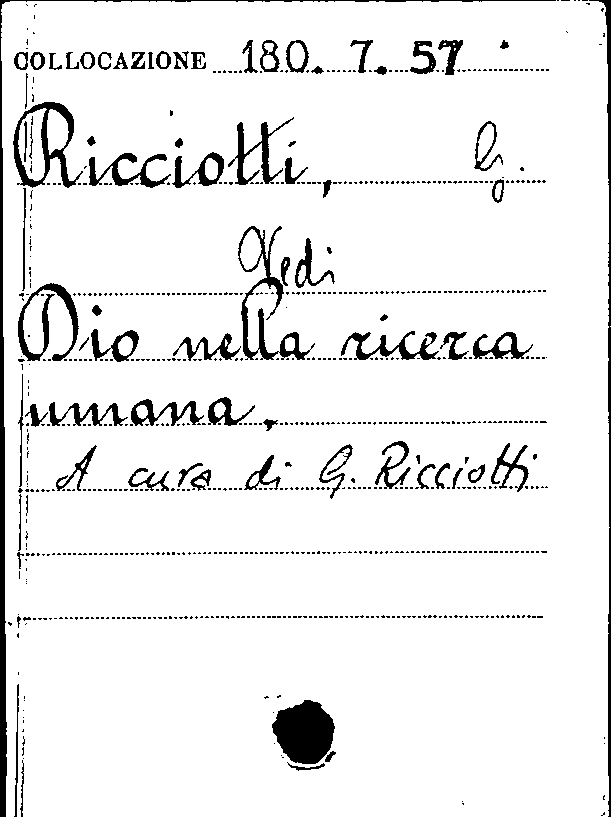 COLLOCAZIONE 180. 7. 57
Ricciotti, G.
Vedi
Dio nella ricerca
umana.
A cura di G. Ricciotti